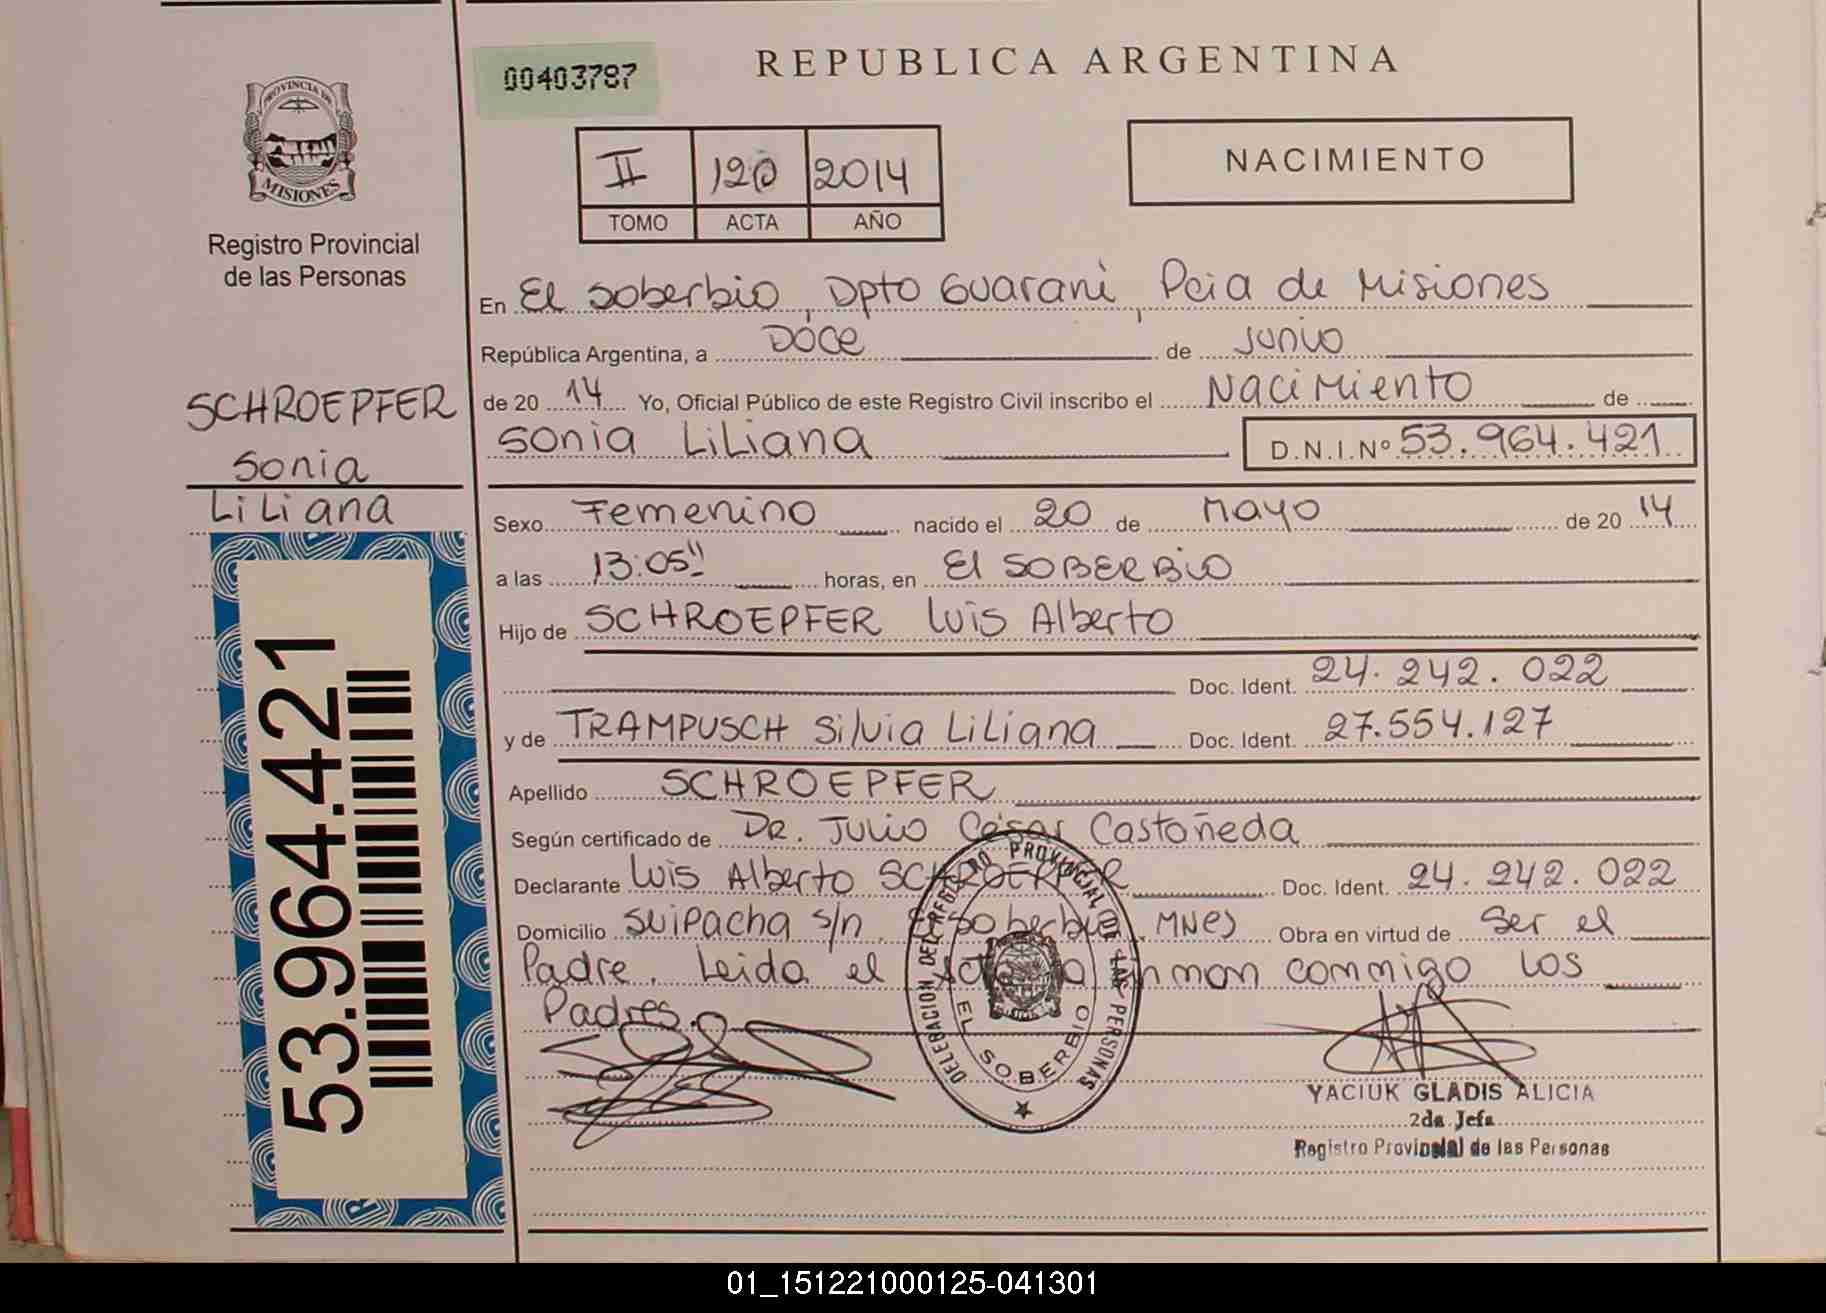 PROVINCIA DE
MISIONES
Registro Provincial
de las Personas
SCHROEPFER
Sonia
Liliana
53.964.421
00403787
REPUBLICA ARGENTINA
II 120 2014
TOMO ACTA AÑO
NACIMIENTO
En El Soberbio, Dpto Guarani, Pcia de Misiones
República Argentina, a Doce de Junio
de 20 14 Yo, Oficial Público de este Registro Civil inscribo el Nacimiento de
Sonia Liliana D.N.I.Nº 53.964.421
Sexo Femenino nacido el 20 de Mayo de 20 14
a las 13:05" horas, en El SOBERBIO
Hijo de SCHROEPFER Luis Alberto
Doc. Ident. 24.242.022
y de TRAMPUSCH Silvia Liliana Doc. Ident. 27.554.127
Apellido SCHROEPFER
Según certificado de DR. Julio César Castañeda
Declarante Luis Alberto SCHROEPFER Doc. Ident. 24.242.022
Domicilio Suipacha s/n. El Soberbio. MNES Obra en virtud de Ser el
Padre. Leida el Acta la firman conmigo los
Padres.
DELEGACION DEL REGISTRO PROVINCIAL DE LAS PERSONAS
EL SOBERBIO
YACIUK GLADIS ALICIA
2da Jefa
Registro Provincial de las Personas
01_151221000125-041301